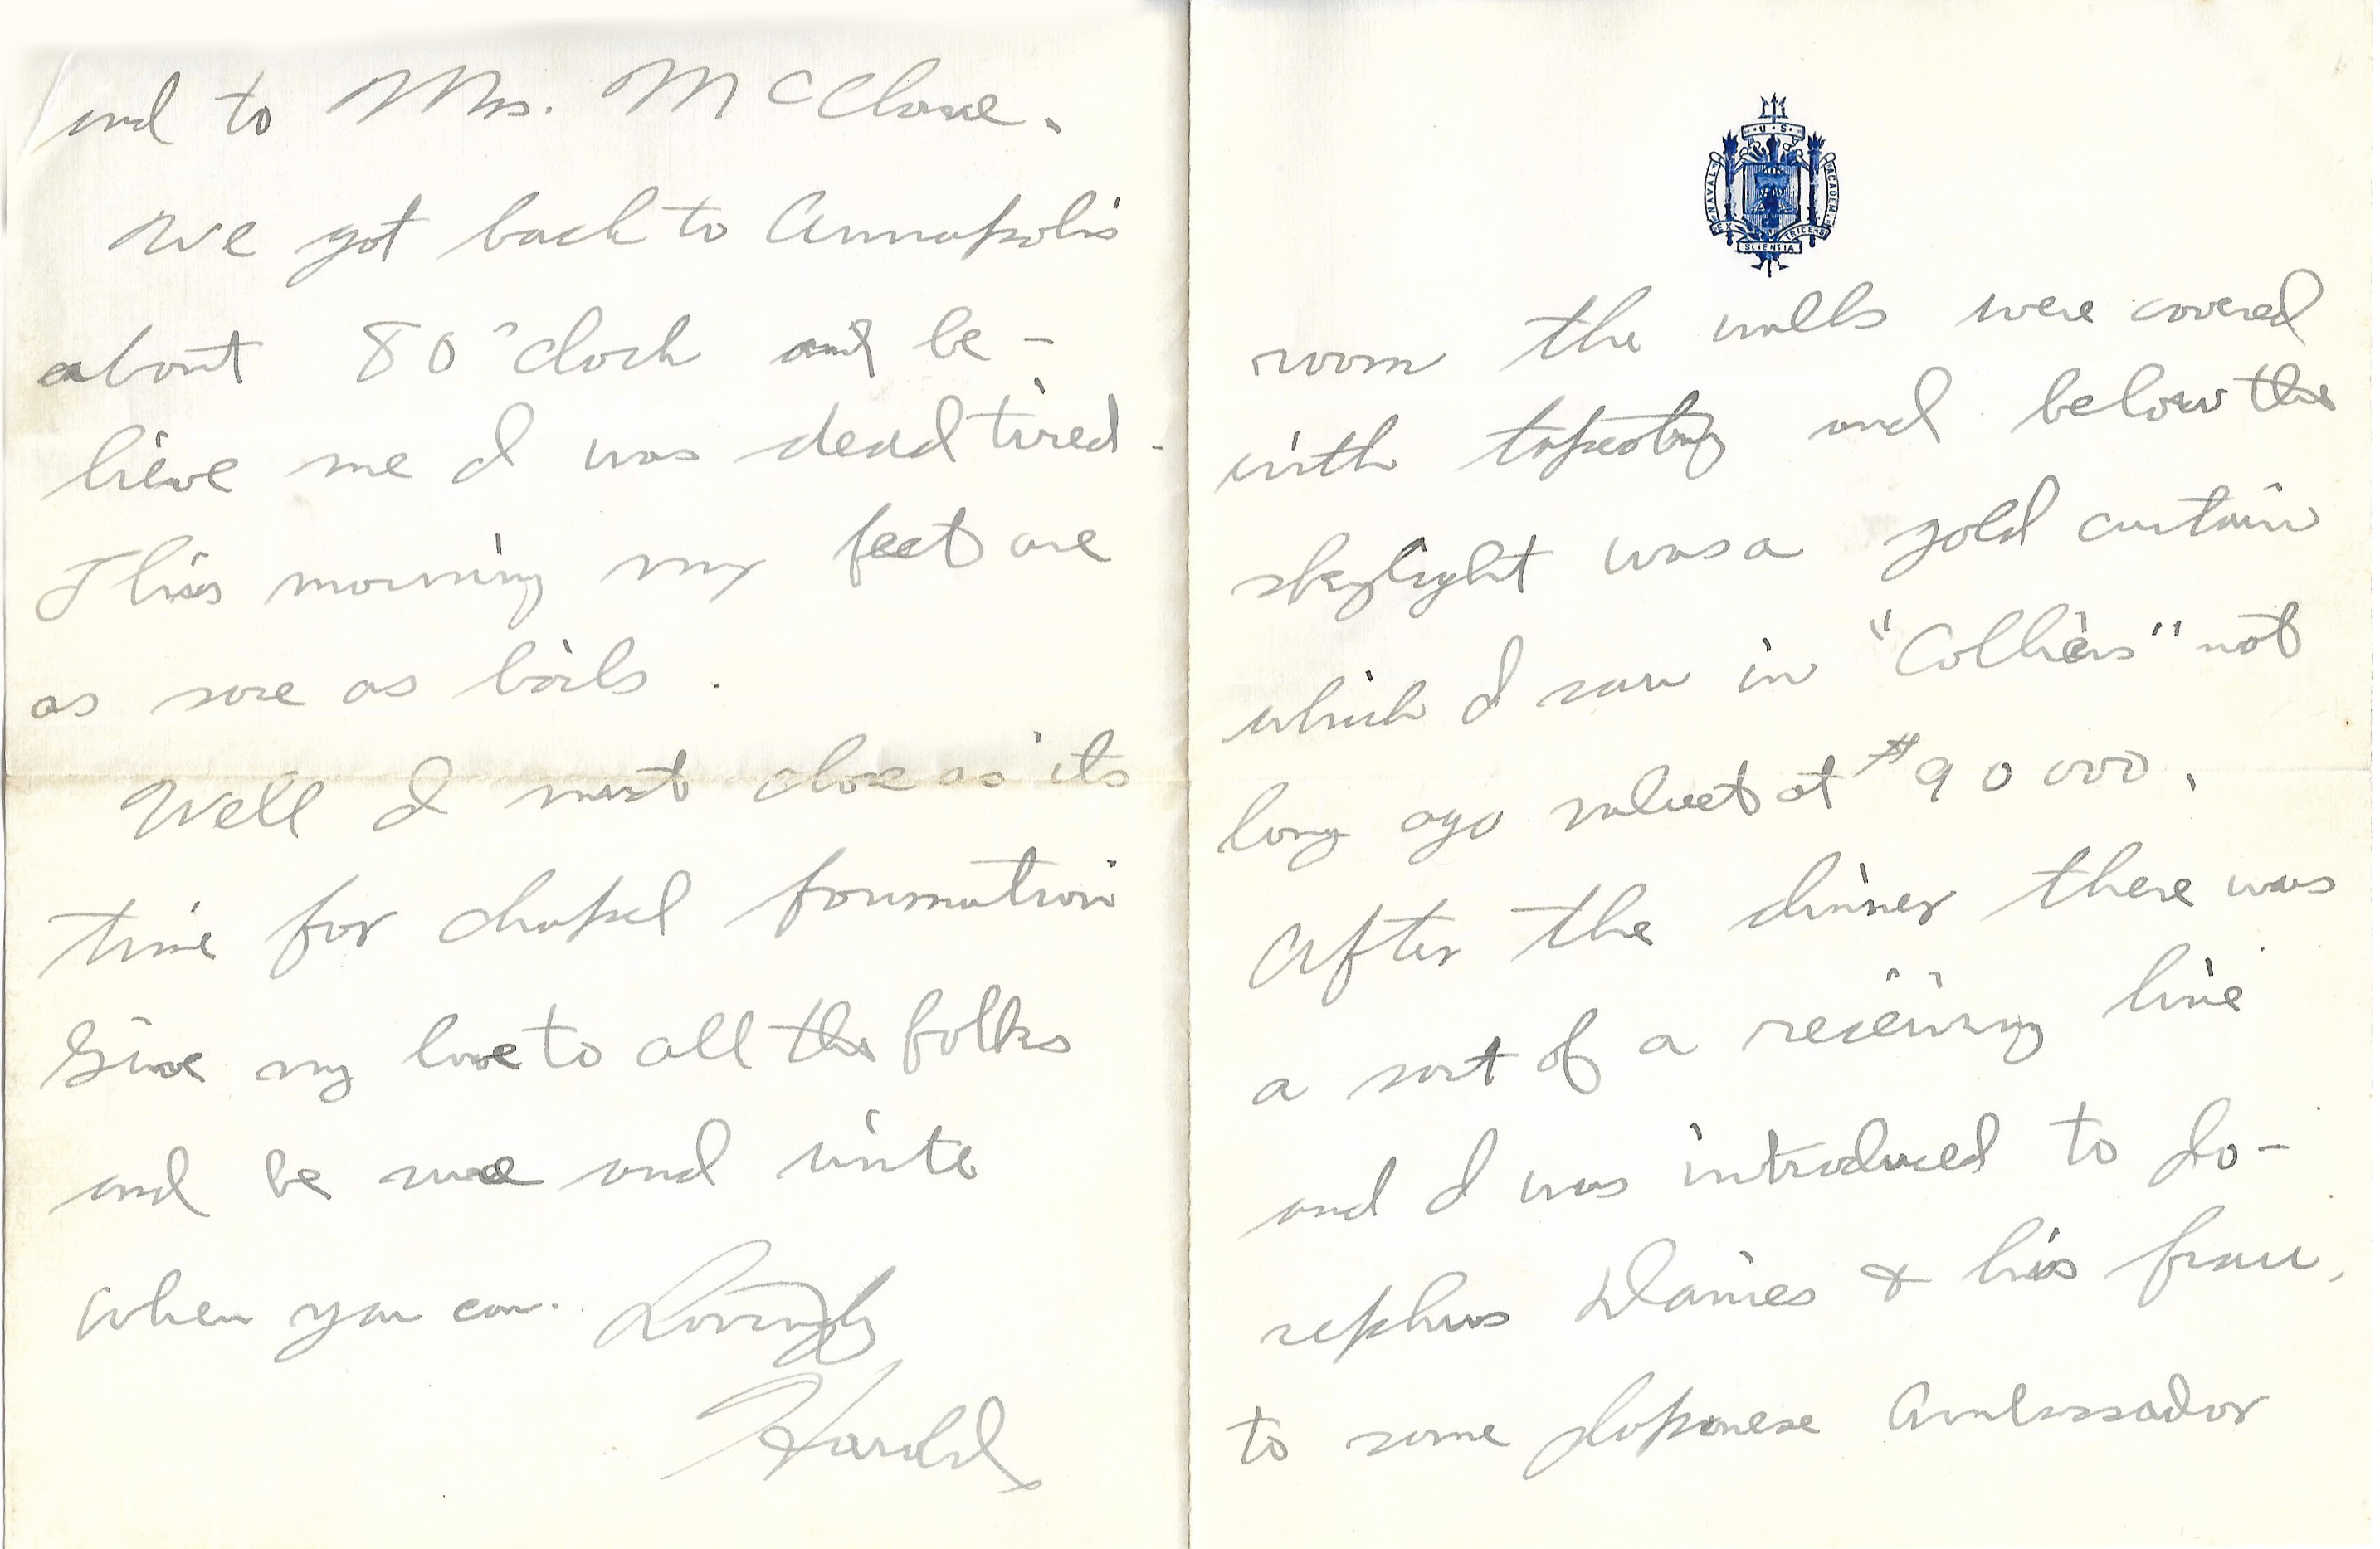 U S
NAVAL ACADEMY
EX SCIENTIA TRIDENS
room the walls were covered
with tapestry and below the
skylight was a gold curtain
which I saw in "Colliers" not
long ago valued at $90000.
After the dinner there was
a sort of a receiving line
and I was introduced to Jo-
sephus Danies & his frau,
to some Japanese Ambassador
and to Mrs.
We got back to Annapolis
about 8 O'clock and be-
lieve me I was dead tired.
This morning my feet are
as sore as boils.
Well I must close as its
time for chapel formation
Give my love to all the folks
and be sure and write
when you can. Lovingly
Harold